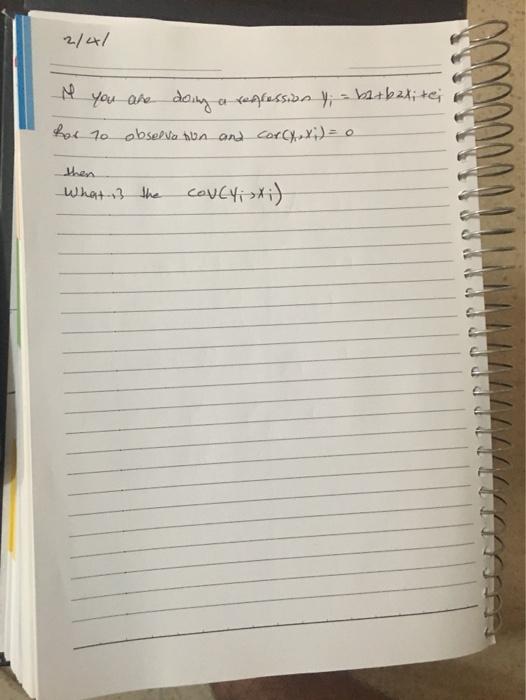 2/4/
If you are doing a regression yi = b1+b2xi+ei
for 70 observation and cor(yi,xi)=0
then
What is the cov(yi,xi)